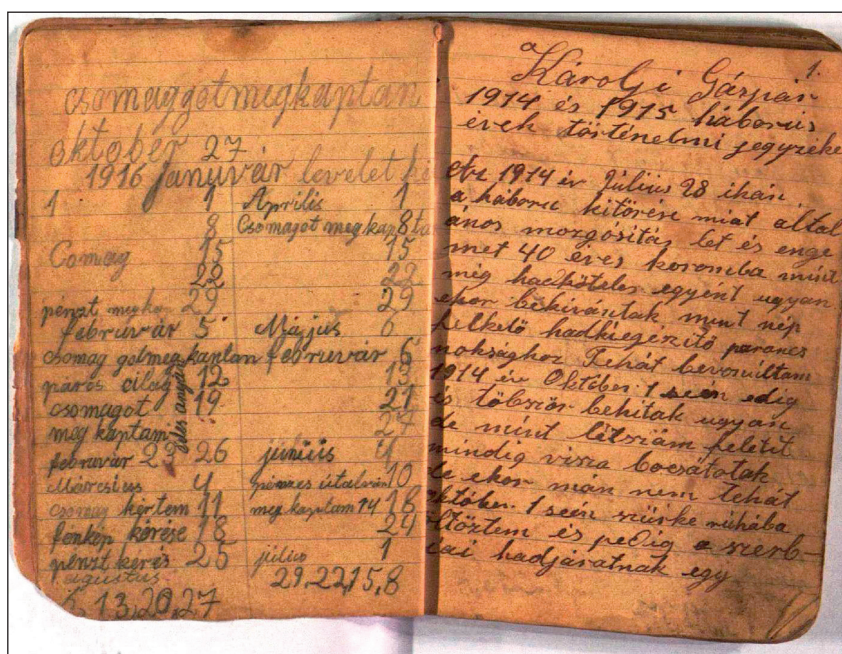 csomaggotmegkaptan
Oktober 27
1916 januvár levelet
1 1 Április 1
8 Csomagot megkap 8
Comag 15 15
22 22
pénzt megkap 29 29
februvár 5 Május 6
csomag gotmegkaptan februvár 6
páros cilag 12 13
csomagot 19 21
meg kaptam 27
februvár 23 26 június 4
Március 4 pénzes útalván 10
csomag kértem 11 meg kaptam 14 18
fenkép kérése 18 24
pénzt kerés 25 július 1
agustus 29,22,15,8
6, 13,20,27
1.
Károlyi Gáspár
1914 és 1915 háborús
évek történelmi jegyzéke
Az 1914 év Július 28 ikán
a háboru kitörése miat által
ános mozgositás let és enge
met 40 éves koromba mint
még hadköteles egyént ugyan
ekor bekivántak mint nép
felkelő hadkiegészitő parancs
noksághoz Tehát bevonultam
1914 év Oktober 1 seén edig
is töbször behitak ugyan
de mint létszám feletit
mindig visza bocsátotak
de ekor mán nem tehát
október 1 seén szürke ruhába
öltöztem és pedig a szerb-
iai hadjáratnak egy